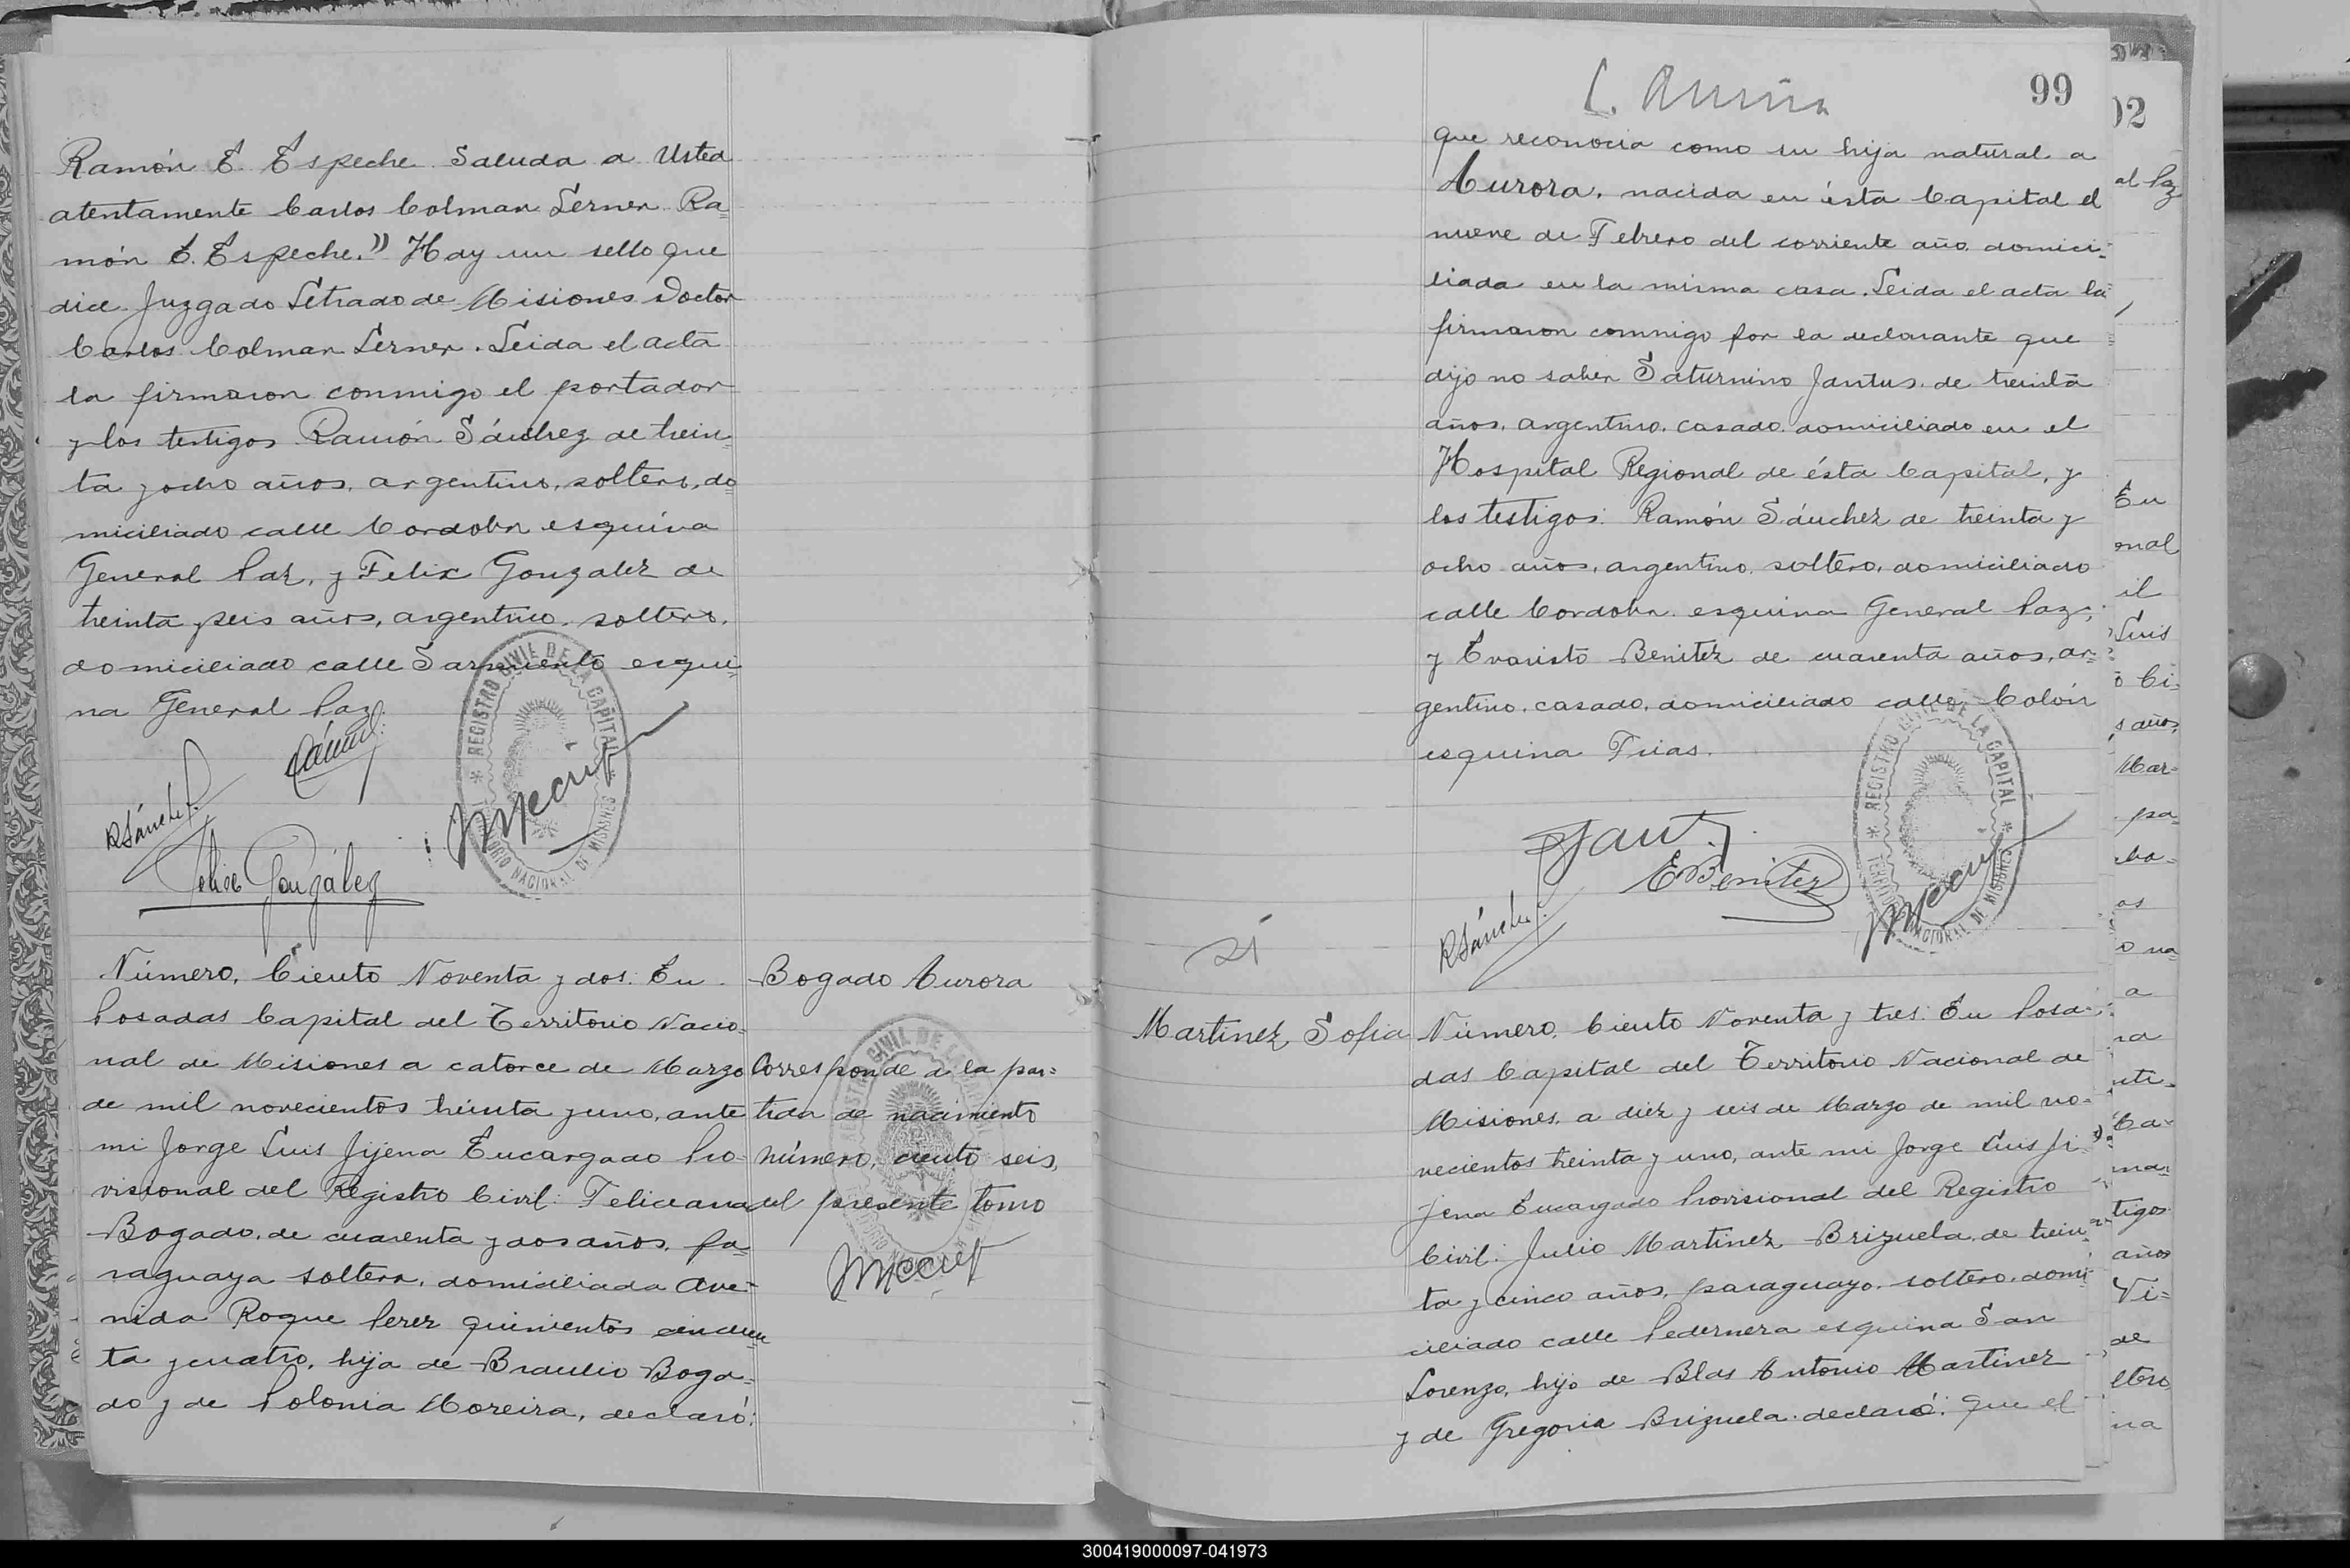 Ramón E. Espeche. Saluda a Usted
atentamente Carlos Colman Lerner. Ra=
món E. Espeche.)) Hay un sello que
dice. Juzgado Letrado de Misiones Doctor
Carlos Colman Lerner. Leida el acta
la firmaron conmigo el portador
y los testigos Ramón Sánchez de trein=
ta y ocho años, argentino, soltero, do=
miciliado calle Cordoba esquina
General Paz, y Felix Gonzalez de
treinta y seis años, argentino, soltero,
domiciliado calle Sarmiento esqui=
na General Paz
REGISTRO CIVIL DE LA CAPITAL
TERRITORIO NACIONAL DE MISIONES
RSánchez
Felix González
Número, Ciento Noventa y dos: En
Posadas Capital del Territorio Nacio=
nal de Misiones a catorce de Marzo
de mil novecientos treinta y uno, ante
mi Jorge Luis Jijena Encargado Pro=
visional del Registro Civil: Feliceana
Bogado, de cuarenta y dos años, pa=
raguaya soltera, domiciliada Ave=
nida Roque Perez quinientos cincuen
ta y cuatro, hija de Braulio Boga=
do y de Polonia Moreira, declaró:
Bogado Aurora
Corresponde a la par=
tida de nacimiento
número, ciento seis,
del presente tomo
99
que reconocia como su hija natural a
Aurora, nacida en ésta Capital el
nueve de Febrero del corriente año, domici=
liada en la misma casa. Leida el acta la
firmaron conmigo por la declarante que
dijo no saber Saturnino Jantus, de treinta
años, argentino, casado, domiciliado en el
Hospital Regional de ésta Capital, y
los testigos: Ramón Sánchez de treinta y
ocho años, argentino, soltero, domiciliado
calle Cordoba esquina General Paz,
y Evaristo Benitez de cuarenta años, ar=
gentino, casado, domiciliado calle Colón
esquina Frias.
REGISTRO CIVIL DE LA CAPITAL
TERRITORIO NACIONAL DE MISIONES
EBenitez
RSánchez
Martinez Sofia
Número, Ciento Noventa y tres: En Posa=
das Capital del Territorio Nacional de
Misiones, a diez y seis de Marzo de mil no=
vecientos treinta y uno, ante mi Jorge Luis Ji=
jena Encargado Provisional del Registro
Civil: Julio Martinez Brizuela, de trein=
ta y cinco años, paraguayo, soltero, domi
ciliado calle Pedernera esquina San
Lorenzo, hijo de Blas Antonio Martinez
y de Gregoria Brizuela. declaró: que el
300419000097-041973